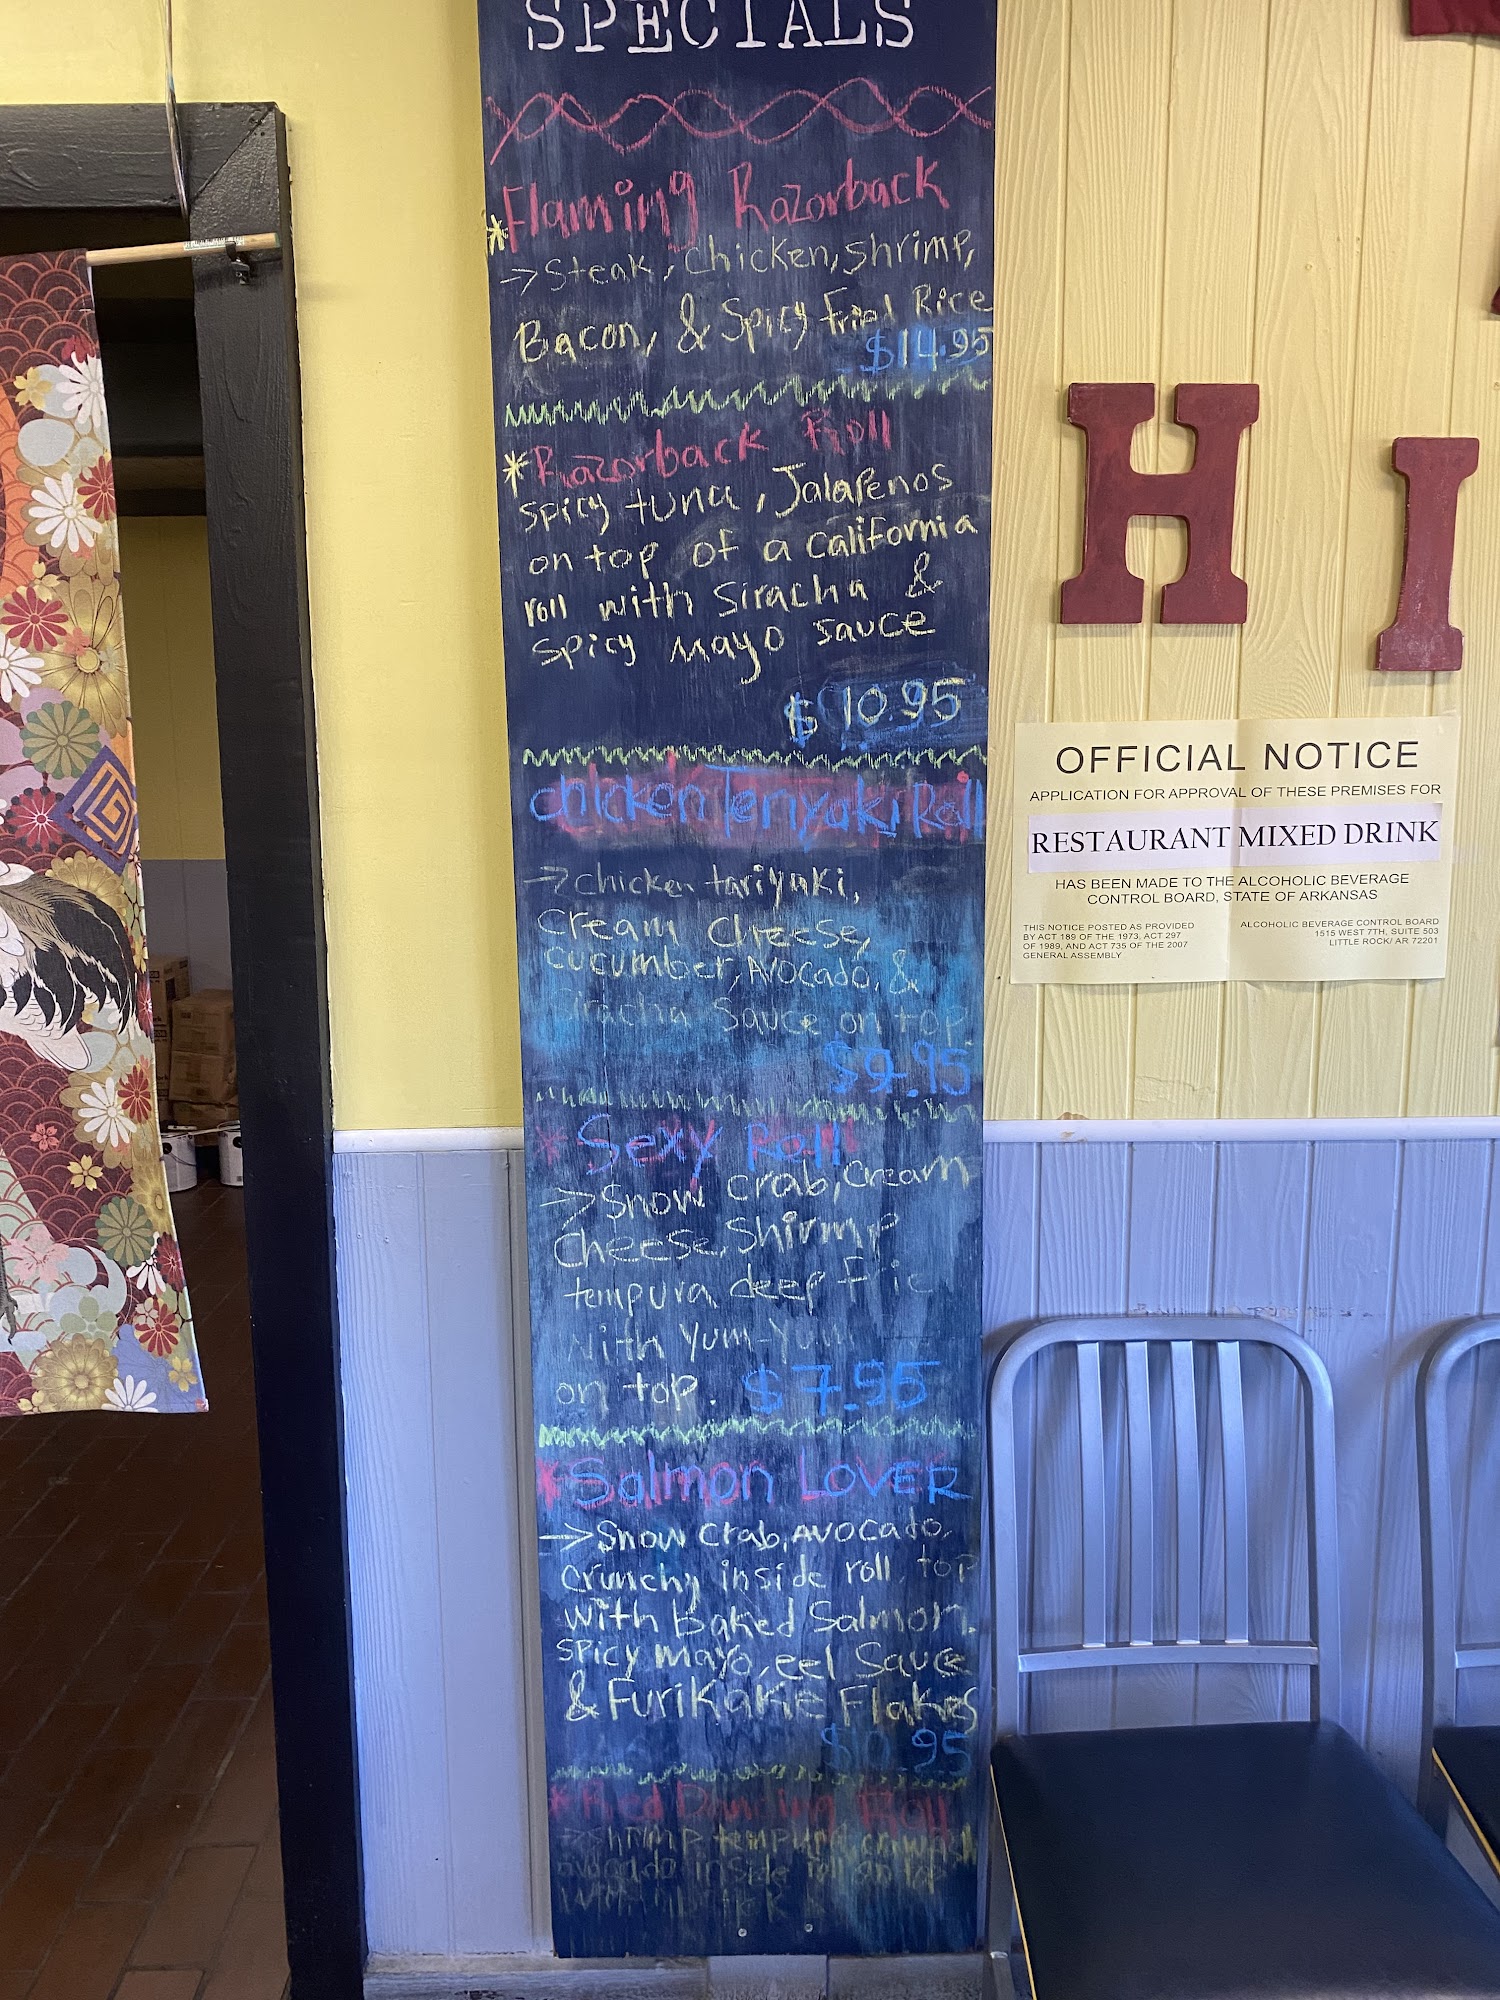 SPECIALS
*Flaming Razorback
->Steak, chicken, shrimp,
Bacon, & Spicy Fried Rice
$14.95
*Razorback Roll
spicy tuna, Jalapenos
on top of a california
roll with Siracha &
spicy mayo sauce
$10.95
chicken Teriyaki Roll
->chicken tariyaki,
cream cheese,
cucumber, Avocado, &
Siracha Sauce on top
$9.95
*Sexy Roll
->Snow crab, cream
cheese, Shirmp
tempura deep fric
with Yum-Yum
on top. $7.95
*Salmon LOVER
->Snow Crab, Avocado,
crunchy inside roll, top
with Baked Salmon,
spicy mayo, eel Sauce
& Furikake Flakes
$10.95
*Red Dancing Roll
->shrimp tempura,
avocado inside roll on top
with
H
I
OFFICIAL NOTICE
APPLICATION FOR APPROVAL OF THESE PREMISES FOR
RESTAURANT MIXED DRINK
HAS BEEN MADE TO THE ALCOHOLIC BEVERAGE
CONTROL BOARD, STATE OF ARKANSAS
THIS NOTICE POSTED AS PROVIDED
BY ACT 189 OF THE 1973, ACT 297
OF 1989, AND ACT 735 OF THE 2007
GENERAL ASSEMBLY
ALCOHOLIC BEVERAGE CONTROL BOARD
1515 WEST 7TH, SUITE 503
LITTLE ROCK/ AR 72201